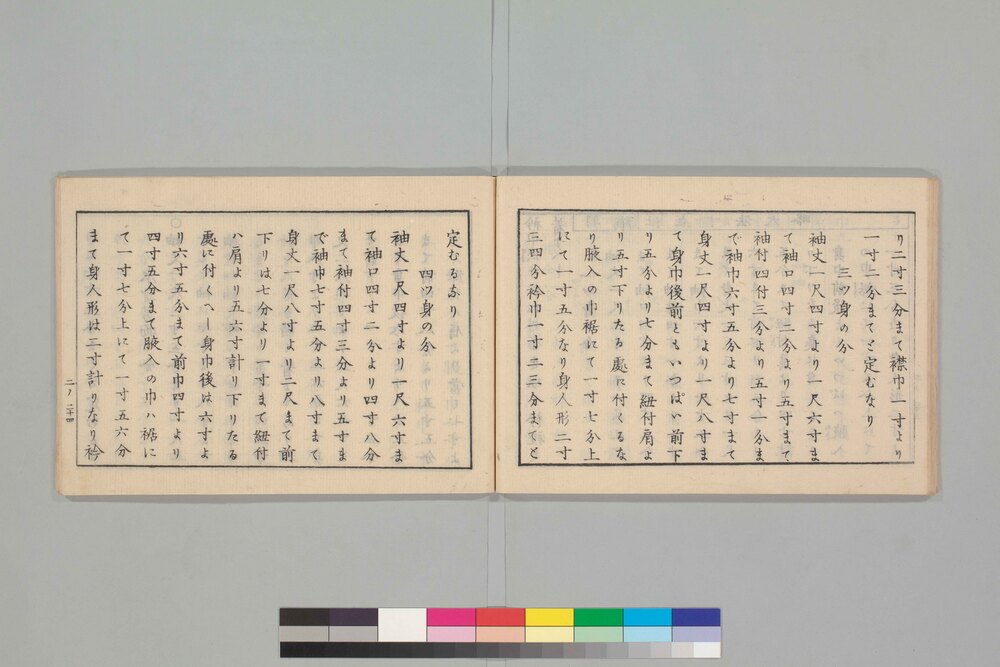 り二寸三分まて襟巾一寸より
一寸二分まてと定むなり
三ッ身の分
袖丈一尺四寸より一尺六寸ま
て袖口四寸二分より五寸まて
袖付四付三分より五寸一分ま
で袖巾六寸五分より七寸まて
身丈一尺四寸より一尺八寸ま
て身巾後前ともいつぱい前下
り五分より七分まて紐付肩よ
り五寸下りたる處に付くるな
り腋入の巾裾にて一寸七分上
にて一寸五分なり身人形二寸
三四分衿巾一寸二三分まてと
定むるなり
四ッ身の分
袖丈一尺四寸より一尺六寸ま
て袖口四寸二分より四寸八分
まて袖付四寸三分より五寸ま
で袖巾七寸五分より八寸まて
身丈一尺八寸より二尺まて前
下りは七分より一寸まて紐付
ハ肩より五六寸計り下りたる
處に付くへし身巾後は六寸よ
り六寸五分まて前巾四寸より
四寸五分まて腋入の巾ハ裾に
て一寸七分上にて一寸五六分
まて身人形は三寸計りなり衿
二ノ二十四